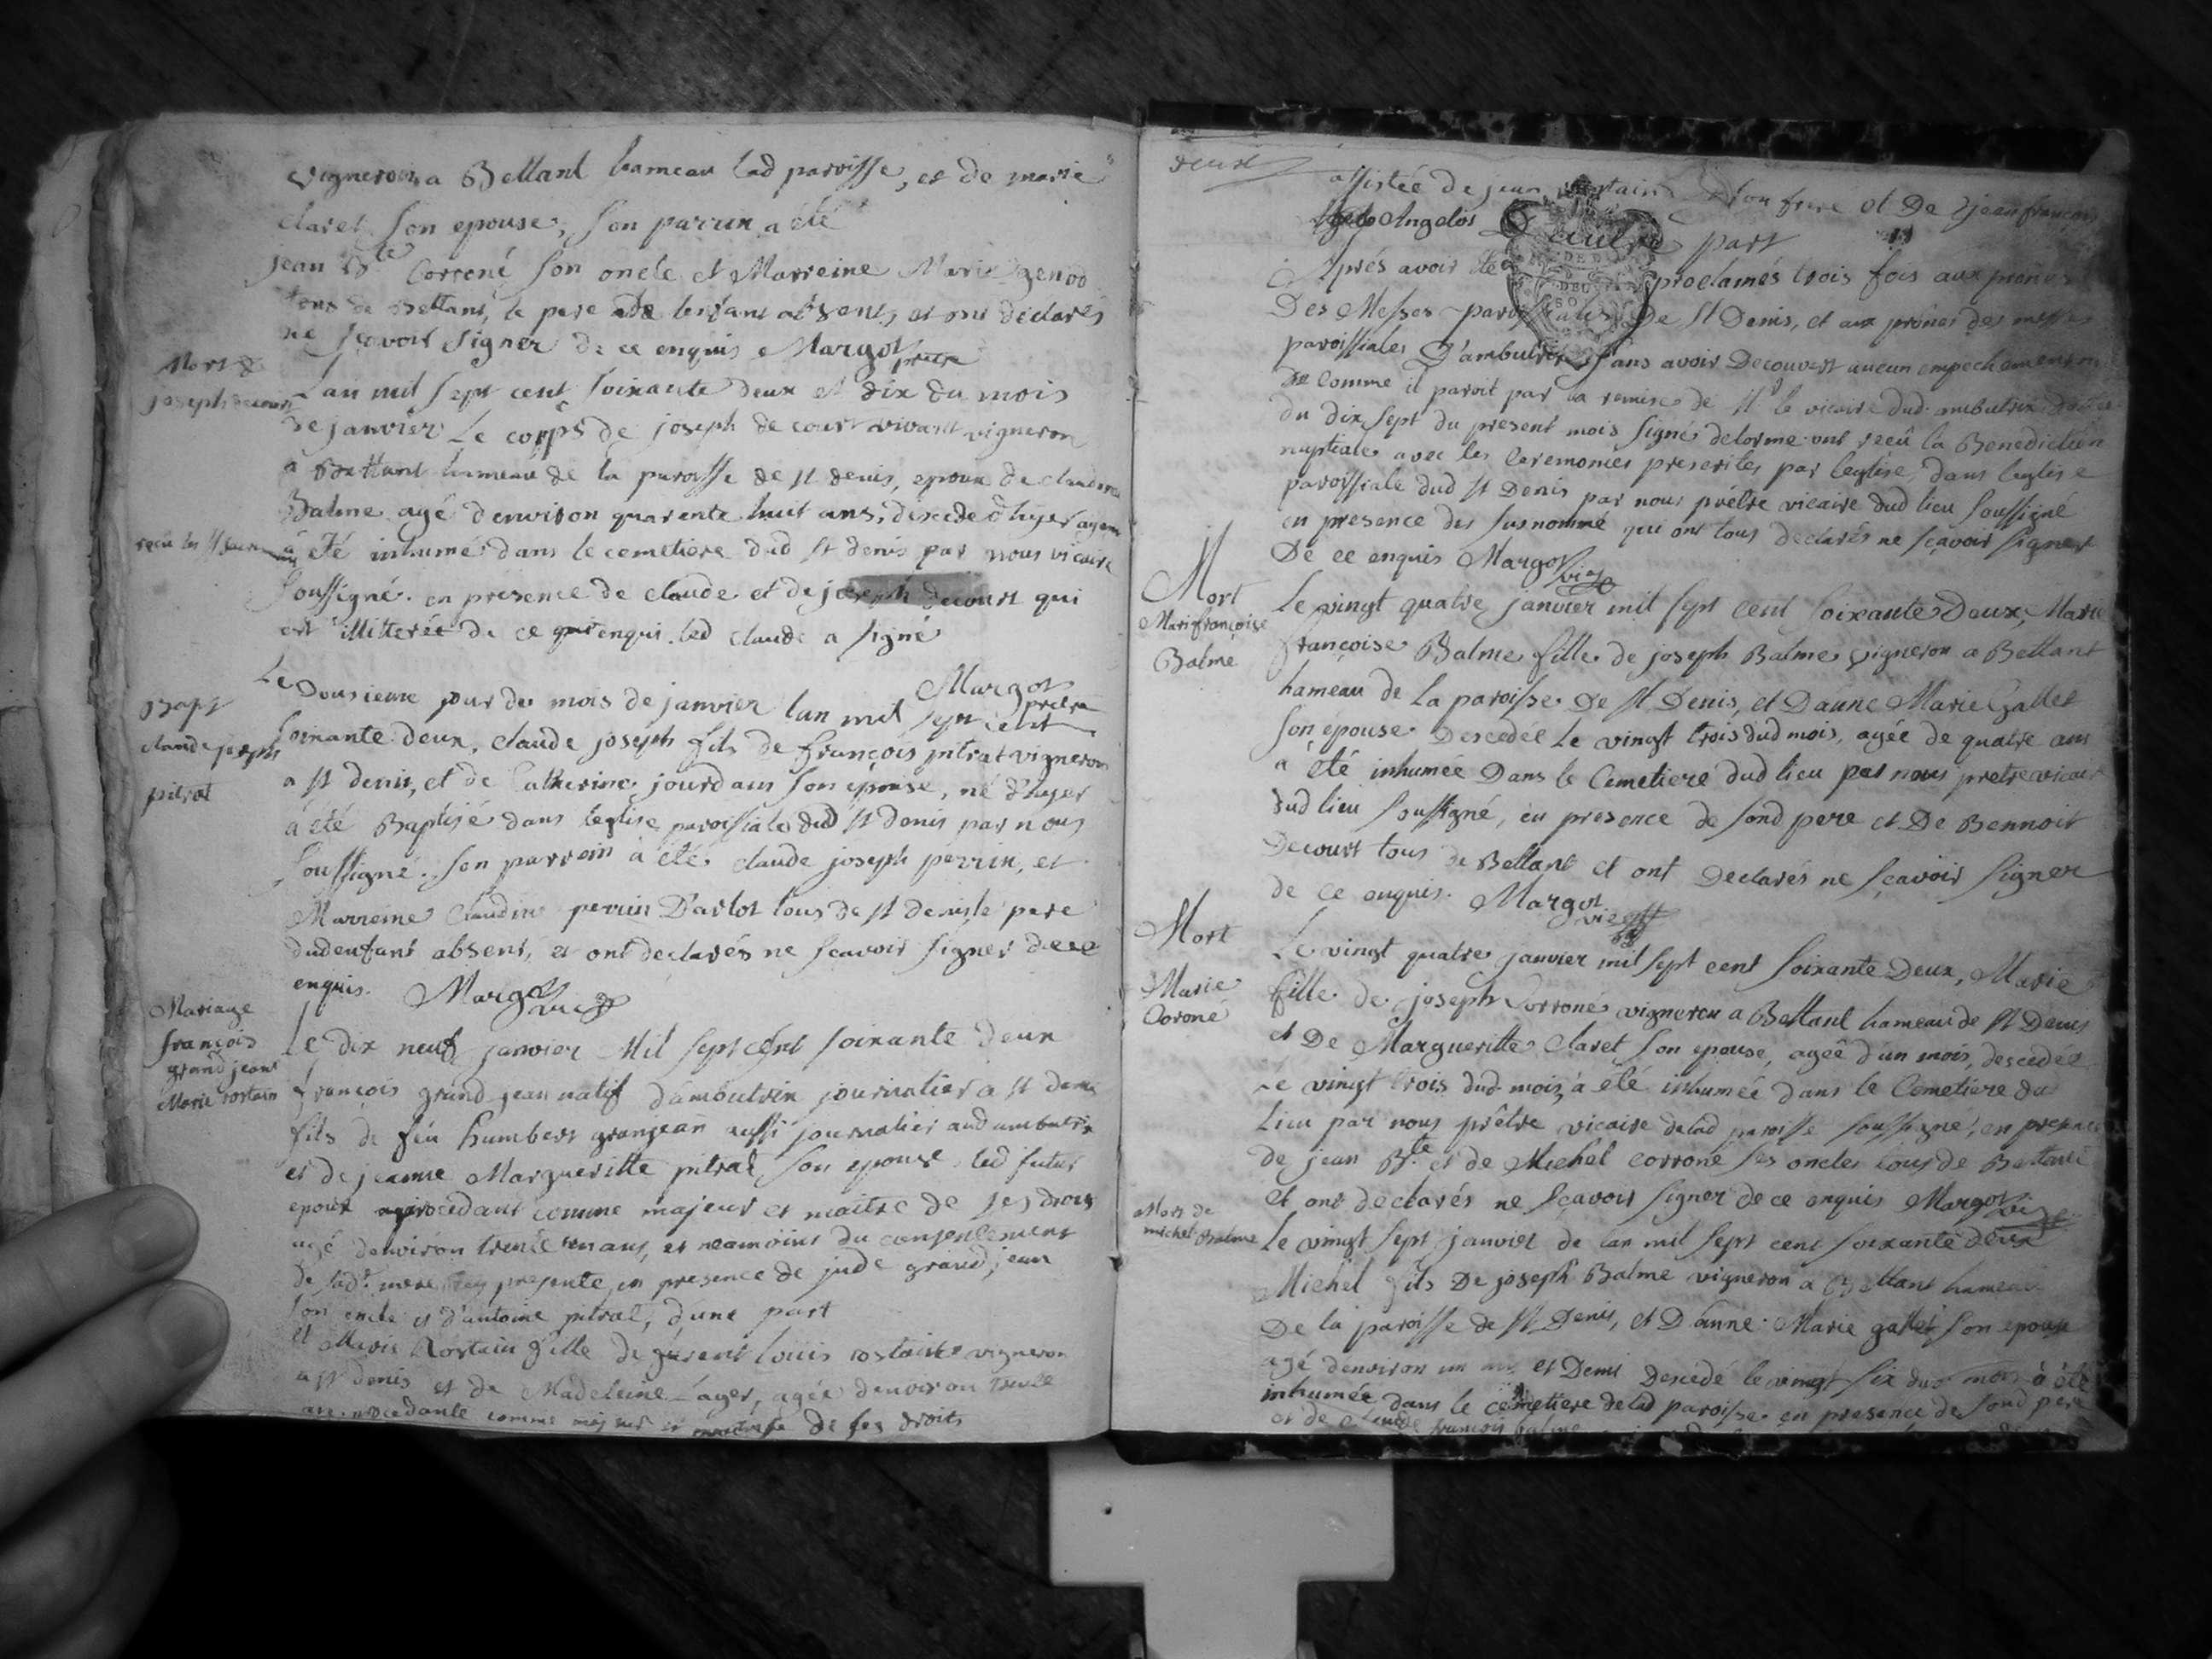 vigneron a Bettant hameau lad paroisse, et de marie
claret son epouse, son parrin a été
jean Bte Corroné son oncle et Marreine Marie genod
tous de Bettant, le pere de lenfant absent, et ont déclarés
ne sçavoir signer de ce enquis Margot pretre
Mort de
joseph decourt
Lan mil sept cent soixante deux et dix du mois
de janvier Le corps de joseph de court vivant vigneron
a Bettant hameau de la paroisse de st denis, epoux de claudine
Balme agé denviron quarente huit ans, descede d'hyer ayant
reçu les st sacremens
a été inhumé dans le cemetiere dud st denis par nous vicaire
soussigné. en presence de claude et de joseph decourt qui
est illiteree de ce enqui. led claude a signé
Margot
pretre
Bapt
claude joseph
pitrat
Le Dousieme jour du mois de janvier lan mil sept cent
soixante deux, claude joseph fils de françois pitrat vigneron
a st denis, et de Catherine jourdain son epouse, né d'hyer
a été Baptisé dans l'eglise paroissiale dud st denis par nous
soussigné. son parrein a été claude joseph perrin, et
Marreine Claudine perrin Darlot tous de st denis le pere
dud enfant absent, et ont declarés ne sçavoir signer de ce
enquis. Margot vic
Mariage
françois
grand jean
Marie rostain
Le dix neuf janvier Mil sept cent soixante deux
françois grand jean natif dambutrix journalier a st denis
fils de feu humbert granjean aussi journalier aud ambutrix
et de jeanne Margueritte pitrat son epouse, led futur
epoux procedant comme majeur et maitre de ses droits
agé denviron trente un ans, et neamoins du consentement
de sad mere presente, en presence de jude grand jean
son oncle et d'antoine pitrat, dune part
et Marie Rostain fille de Louis rostain vigneron
a st denis et de Madeleine Lager, agée denviron trente
ans procedante comme majeur et maitresse de ses droits
assistée de jean rostain son frere et De jean françois
Angelos D'autre part
Aprés avoir été proclamés trois fois aux prones
Des Messes paroissiales De st Denis, et aux prônes des messes
paroissiales D'ambutrix sans avoir Decouvert aucun empechement
comme il paroit par la remise de Mr le vicaire dud. ambutrix
du dix sept du present mois signé delorme ont reçû la Benediction
nuptiale avec les Ceremonies prescrites par leglise, dans leglise
paroissiale dud st Denis par nous prêtre vicaire dud lieu soussigné
en presence des susnommé qui ont tous declarés ne sçavoir signer
De ce enquis Margot vic
Mort
Marie françoise
Balme
Le vingt quatre janvier mil sept cent soixante Deux, Marie
françoise Balme fille de joseph Balme vigneron a Bettant
hameau de la paroisse De st Denis, et Danne Marie gallet
son epouse Descedée Le vingt trois dud mois, agée de quatre ans
a été inhumée Dans le Cemetiere dud lieu par nous pretre vicaire
dud lieu soussigné, en presence de sond pere et De Bennoit
Decourt tous de Bettant et ont Declarés ne sçavoir signer
de ce enquis. Margot vic
Mort
Marie
Coroné
Le vingt quatre janvier mil sept cent soixante Deux, Marie
fille de joseph Corroné vigneron a Bettant hameau de st Denis
et De Margueritte Claret son epouse, agée d'un mois, descedée
Le vingt trois dud. mois, a été inhumée dans le Cemetiere du
Lieu par nous prêtre vicaire delad paroisse soussigné, en presence
de jean Bte et de Michel corroné ses oncles tous de Bettant
et ont declarés ne sçavoir signer de ce enquis Margot vic
Mort de
michel Balme
Le vingt sept janvier de lan mil sept cent soixante deux
Michel fils De joseph Balme vigneron a Bettant hameau
De la paroisse de st Denis, et D'anne Marie gallet son epouse
agé denviron un an et Demi descedé le vingt six dud mois a été
inhumée dans le cemetiere delad paroisse en presence de sond pere
et de claude françois balme